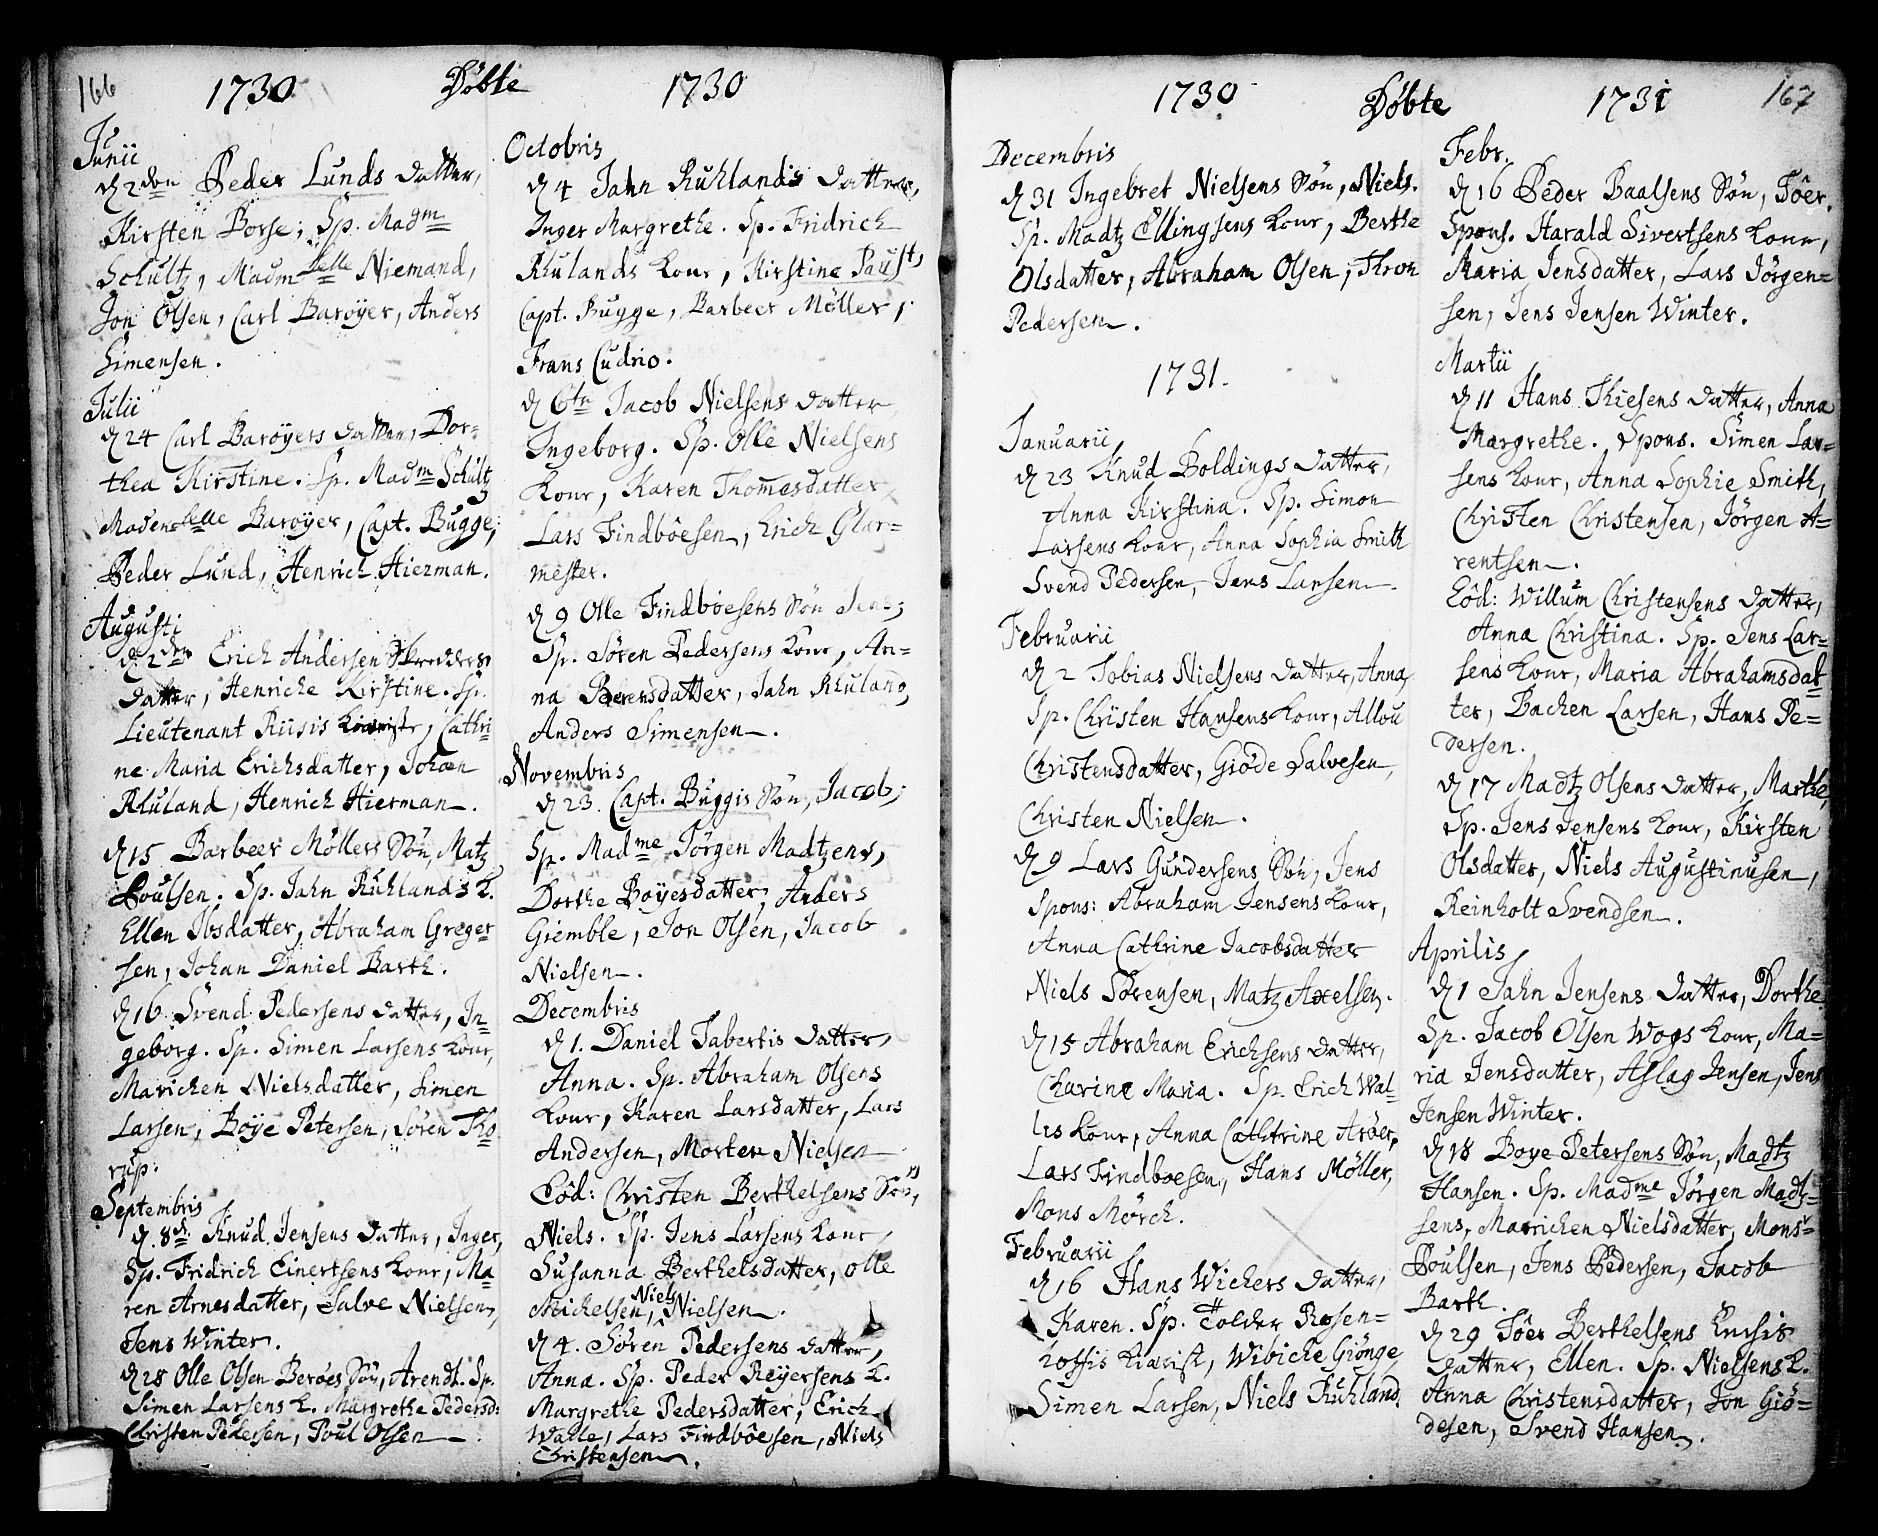 166
1730 Döbte 1730
Junii
d 2den Peder Lunds datter,
Kirsten Borse; Sp. Madm
Schultz, Madmselle Niemand,
Jon Olsen, Carl Baröyer, Anders
Simensen.
Julii
d 24 Carl Baröyers datter, Dor-
thea Kirstine. Sp. Madm Schultz
Madenselle Baröyer, Capt. Bugge,
Peder Lund, Henrich Hierman.
Augusti
d. 2den Erich Andersen Skredders
datter, Henriche Kirstine. Sp.
Lieutenant Riisis, Cathri=
ne Maria Erichsdatter, Johan
Rhuland, Henrich Hierman.
d 15 Barbeer Möllers Sön, Matz
Poulsen. Sp. Jahn Ruhlands k.
Ellen Ibsdatter, Abraham Greger=
sen, Johan Daniel Barth.
d 16 Svend Pedersens datter, In=
geborg. Sp. Simen Larsens kour,
Marichen Nielsdatter, Simen
Larsen, Böye Petersen, Sören Tho=
rup.
Septembris
d. 8d. Knud Jensens datter, Inger,
Sp. Fridrich Einertsens kour, Ma=
ren Arnesdatter, Salve Nielsen,
Jens Winter.
d 28 Olle Olsen Beröes Sön, Arendt. Sp.
Simen Larsens k. Margrethe Pedersd:
Christen Pedersen, Poul Olsen
Octobris
d 4 Jahn Ruhlands datter,
Inger Margrethe. Sp. Fridrich
Rhulands kour, Kirstine Paust,
Capt. Bugge, Barbeer Möller,
Frans Cudrio.
d 6tn Jacob Nielsens datter
Ingeborg. Sp. Olle Nielsens
kour, Karen Thomesdatter,
Lars Findböesen, Erich Glar=
mester.
d 9 Olle Findböesens Sön Jens;
Sp. Sören Pedersens kour, An=
na Berensdatter, Jahn Rhuland,
Anders Simensen.
Novembris
d 23. Capt. Buggis Sön, Jacob;
Sp. Madme Jörgen Madtzens,
Dorthe Boyesdatter, Anders
Giemble, Jon Olsen, Jacob
Nielsen.
Decembris
d 1. Daniel Tabertis datter,
Anna. Sp. Abraham Olsens
kour, Karen Larsdatter, Lars
Andersen, Morten Nielsen
Eôd: Christen Berthelsens Sön,
Niels. Sp. Jens Larsens kour,
Susanna Berthelsdatter, Olle
Michelsen, Niels Nielsen.
d 4. Sören Pedersens datter,
Anna. Sp. Peder Reyersens k.
Margrethe Pedersdatter, Erich
Walle, Lars Findböesen, Niels
Christensen.
167
1730 Döbte 1731
Decembris
d 31 Ingebret Nielsens Sön, Niels.
Sp. Madtz Ellingsens kour, Berthe
Olsdatter, Abraham Olsen, Thron
Pedersen.
1731.
Januarii
d 23 Knud Boldings datter,
Anna Kirstina. Sp. Simon
Larsens kour, Anna Sophia Smith
Svend Pedersen, Jens Larsen.
Februarii
d 2 Tobias Nielsens datter, Anna,
Sp. Christen Hansens kour, Allou
Christensdatter, Giöde Salvesen,
Christen Nielsen.
d 9 Lars Gundersens Sön, Jens
Spons: Abraham Jensens kour,
Anna Cathrine Jacobsdatter
Niels Sörensen, Matz Axelsen.
d 15 Abraham Erichsens datter,
Charine Maria. Sp. Erich Wal=
lis kour, Anna Cathtrine Aröer,
Lars Findboesen, Hans Möller,
Mons Mörch.
Februarii
d 16 Hans Wichers datter,
Karen. Sp. Tolder Rosen=
Kiærist, Wibiche Giönge,
Simen Larsen, Niels Ruhland.
Febr.
d 16 Peder Baalsens Sön, Töer.
Spons. Harald Sivertsens kour,
Maria Jensdatter, Lars Jörgen=
sen, Jens Jensen Winter.
Martii
d 11 Hans Thiesens datter, Anna
Margrethe. Spons. Simen Lar=
sens kour, Anna Sophie Smith,
Christen Christensen, Jörgen A=
rentsen.
Eôd: Willum Christensens datter,
Anna Christina. Sp. Jens Lar=
sens kour, Maria Abrahamsdat=
ter, Bachen Larsen, Hans Pe=
dersen.
d 17 Madtz Olsens datter, Marthe,
Sp. Jens Jensens kour, Kirsten
Olsdatter, Niels Augustinusen,
Reinholt Svendsen.
Aprilis
d 1 Jahn Jensens datter, Dorthe.
Sp. Jacob Olsen Wogs kour, Ma=
ria Jensdatter, Aslag Jensen, Jens
Jensen Winter.
d 18 Boye Petersens Sön, Madtz
Hansen. Sp. Madme Jörgen Madt=
sens, Marichen Nielsdatter, Mons
Poulsen, Jens Pedersen, Jacob
Barth.
d 29 Töer Berthelsens Enchis
datter, Ellen. Sp. Nielsens k.
Anna Christensdatter, Jon Giö=
desen, Svend Hansen.